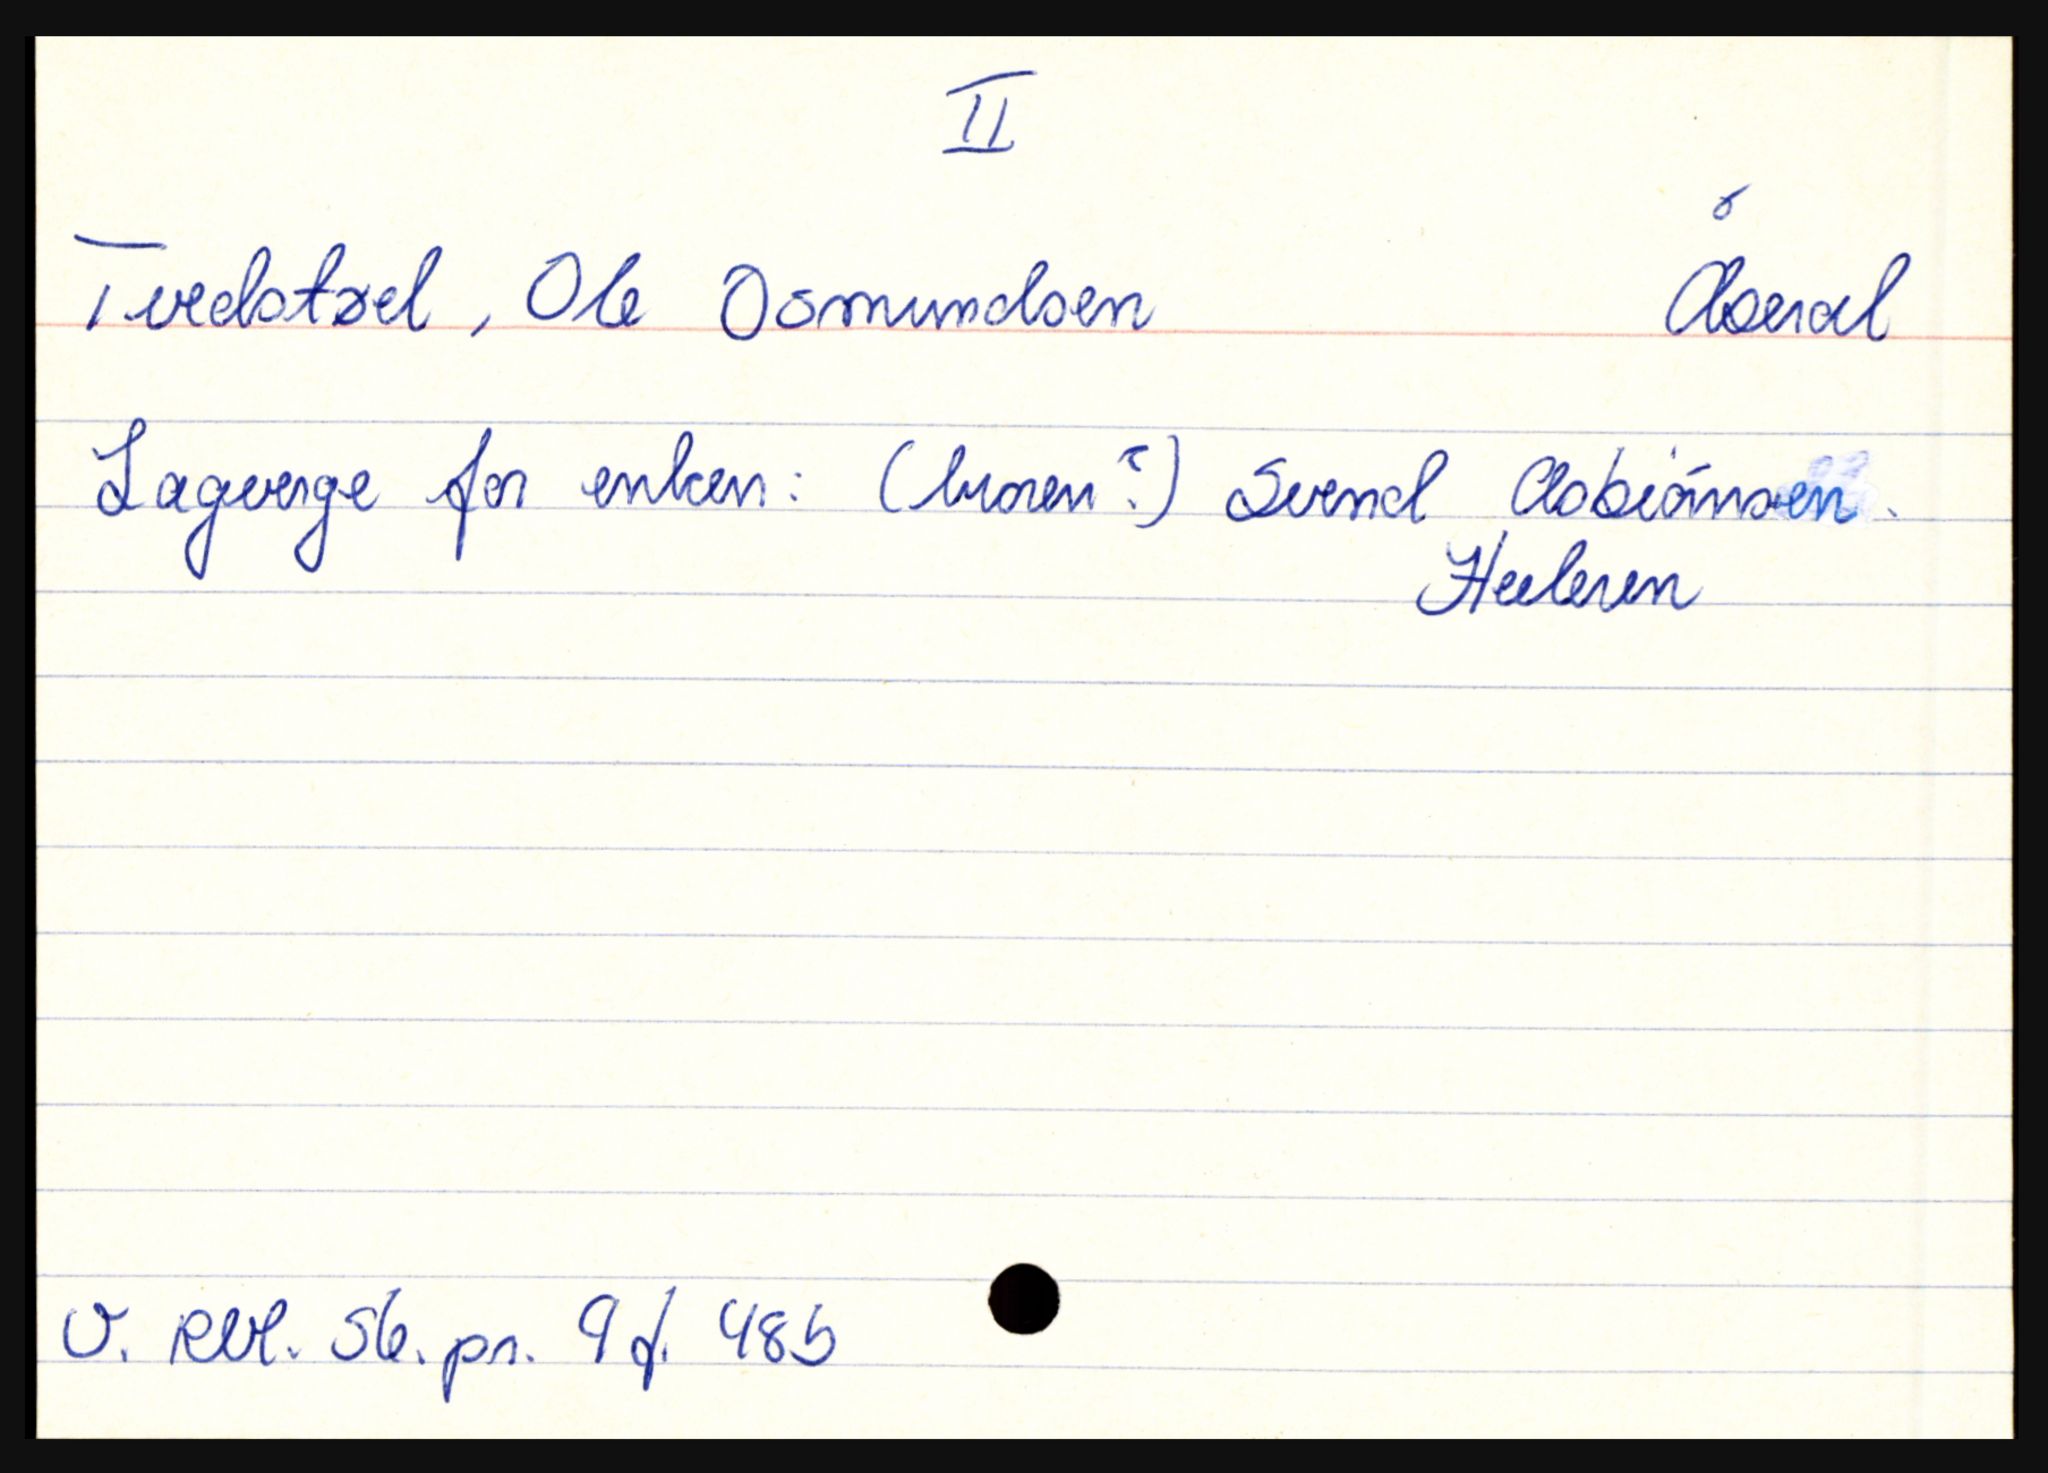 II
Tvedstøel, Ole Osmundsen Åseral
Lagverge for enken: (broren?) Svend Asbiönsen.
Heeleren
V. Rbl. Sk.pr. 9 f. 48b